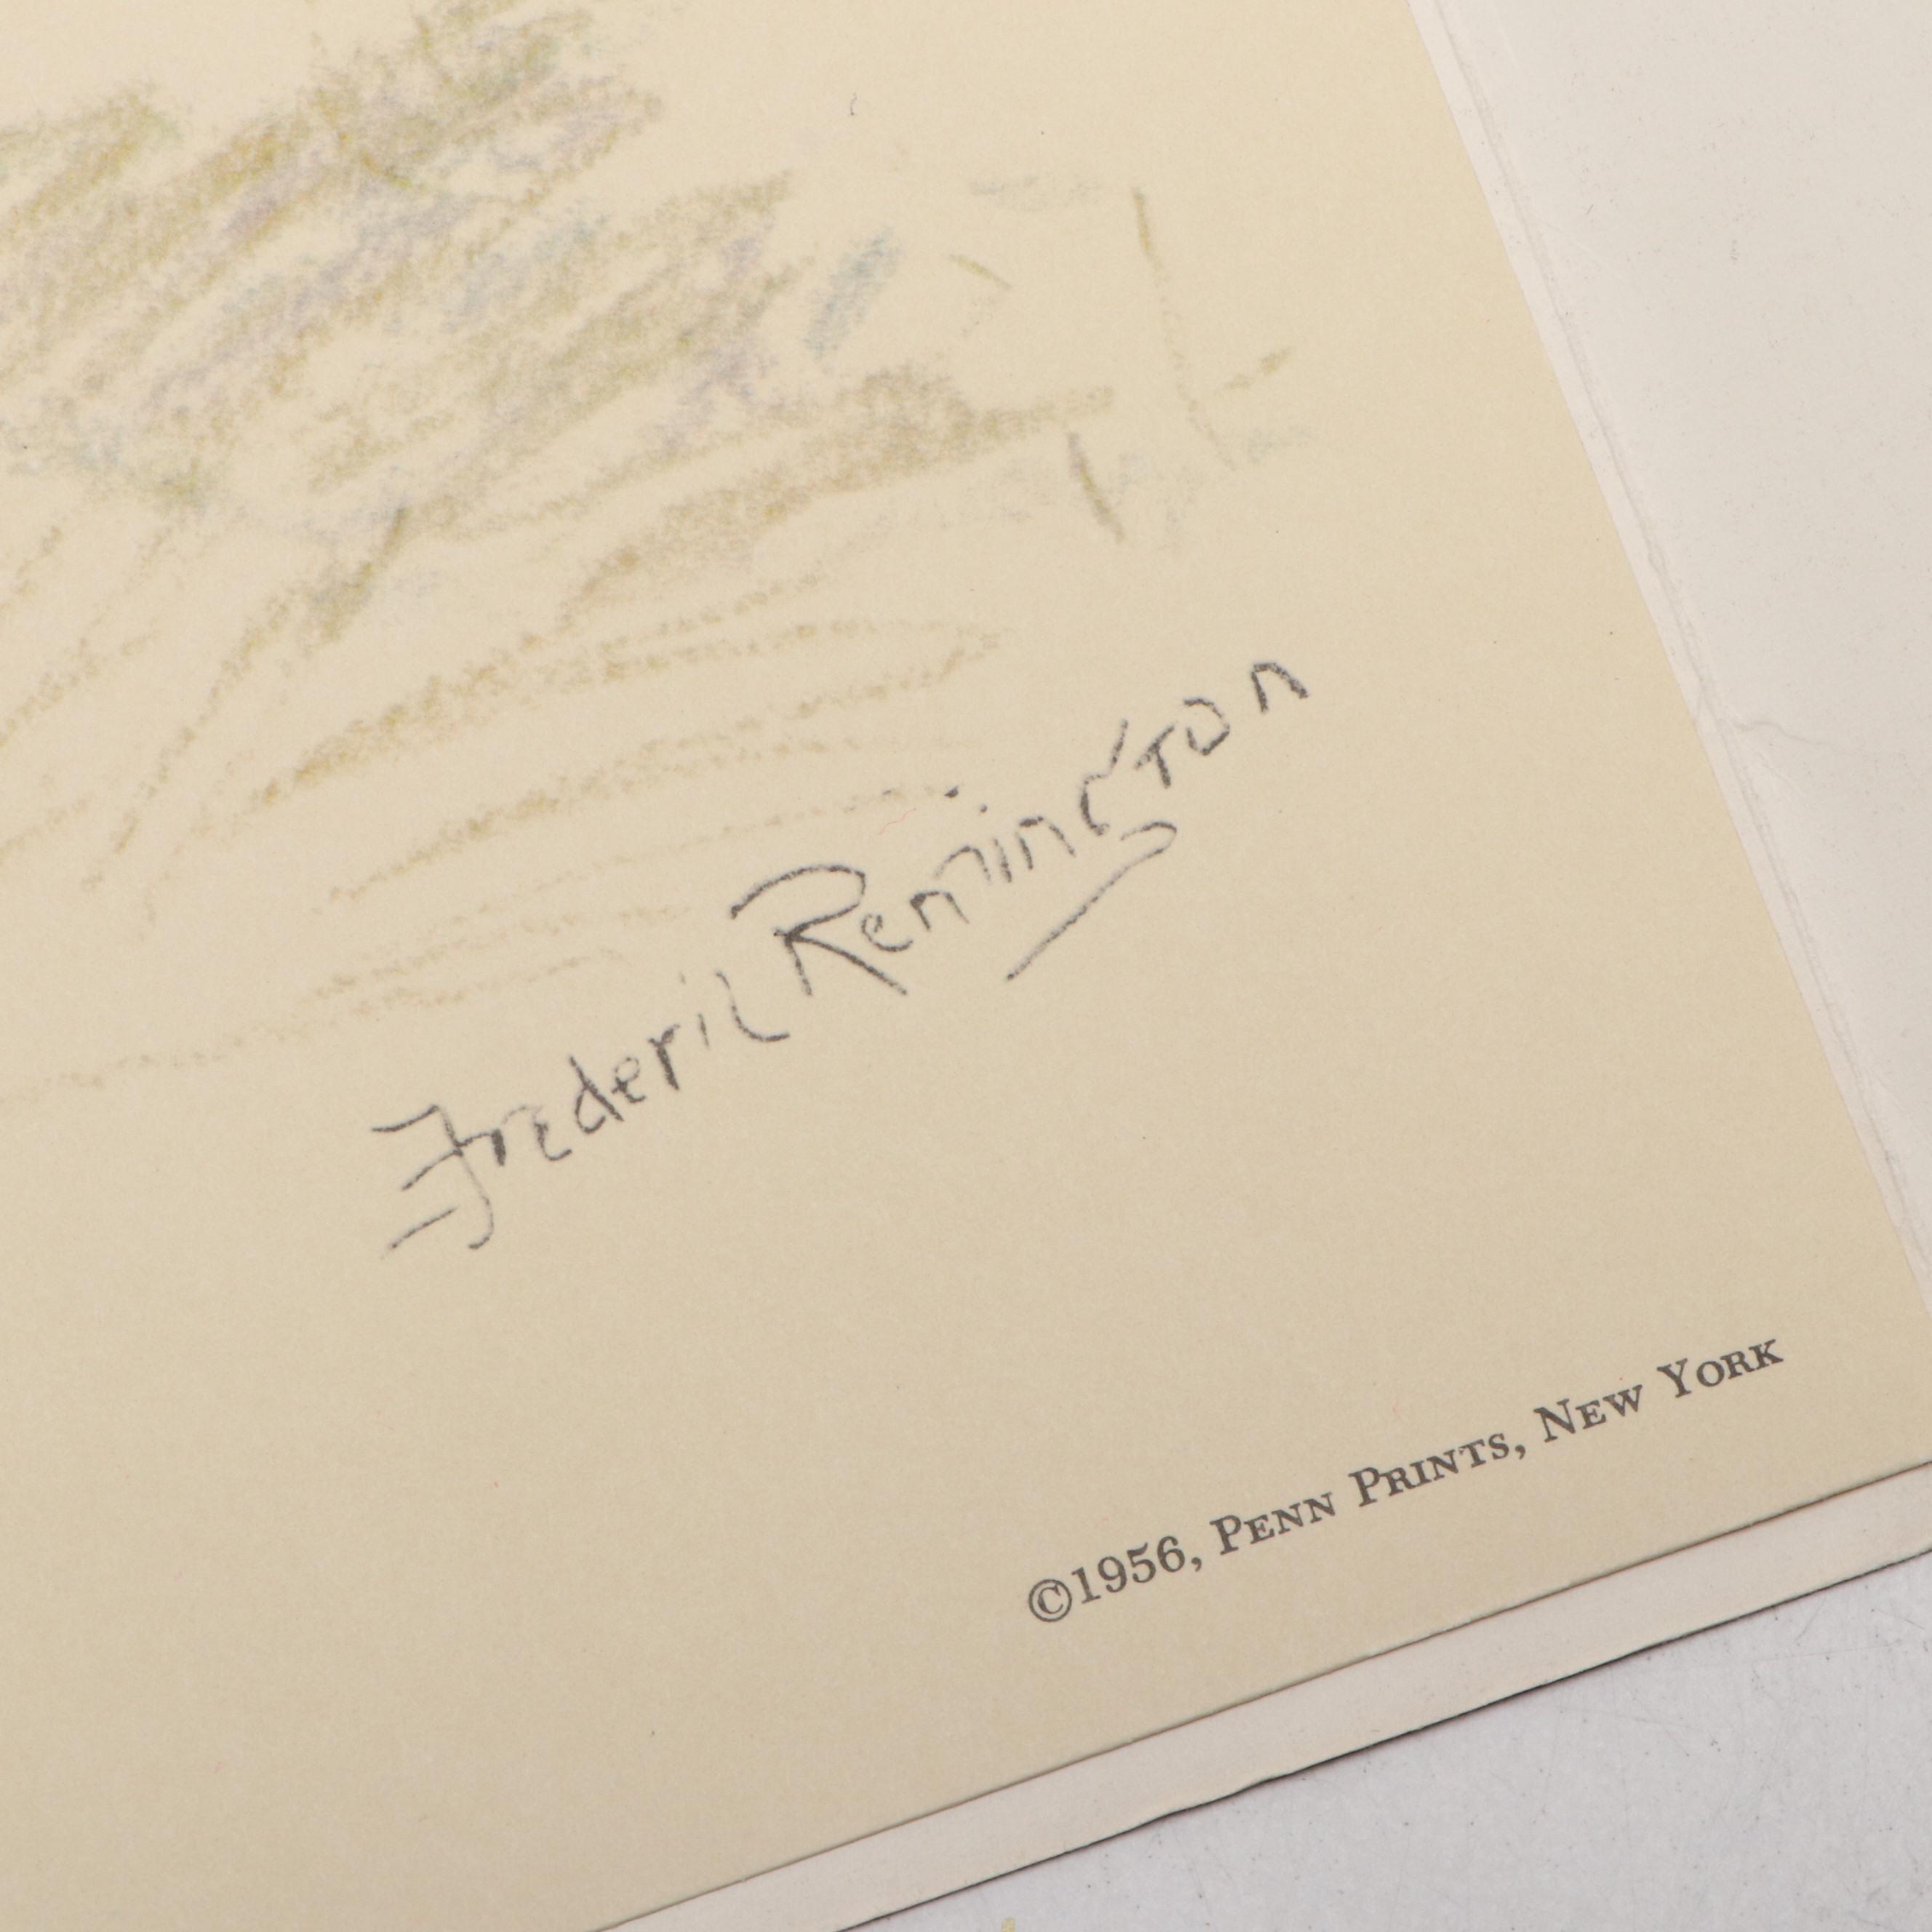 Frederic Remington
©1956, Penn Prints, New York